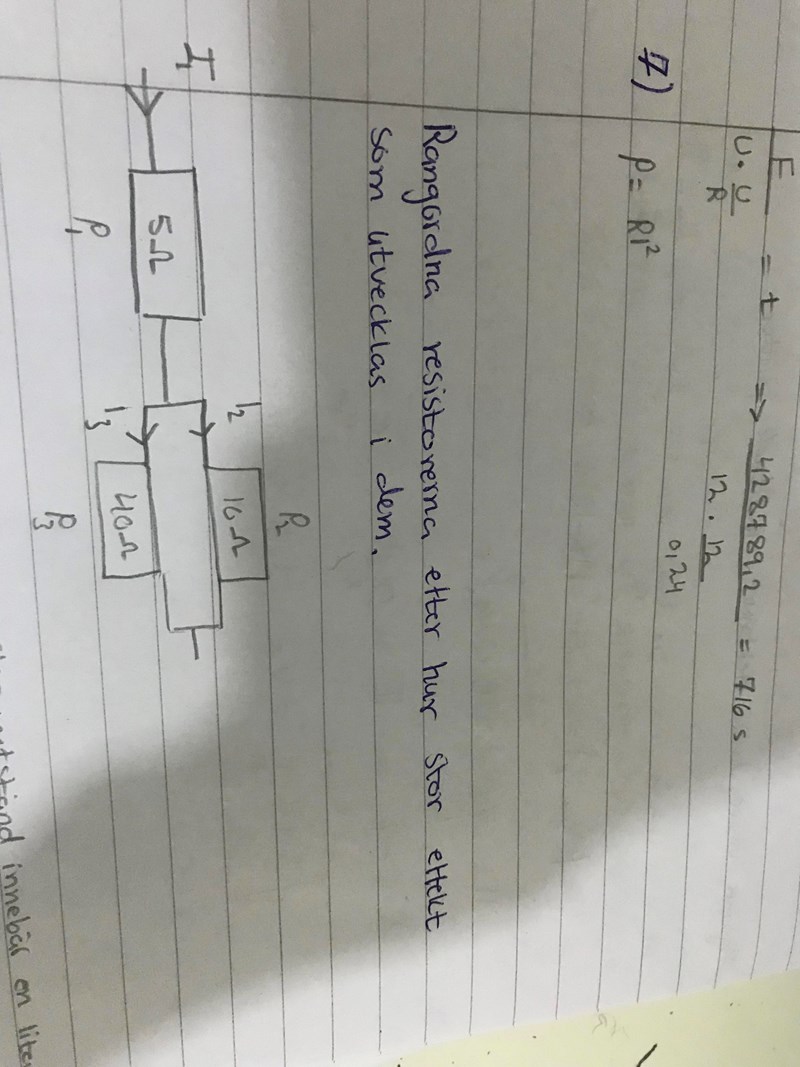 E
U · U/R = t => 4287789,2 / 12 · 12/0,24 = 716 s
7) P = RI²
Rangordna resistorerna efter hur stor effekt
som utvecklas i dem.
I₁ 5Ω P₁
I₂ 10Ω P₂
I₃ 40Ω P₃
innebär en lite